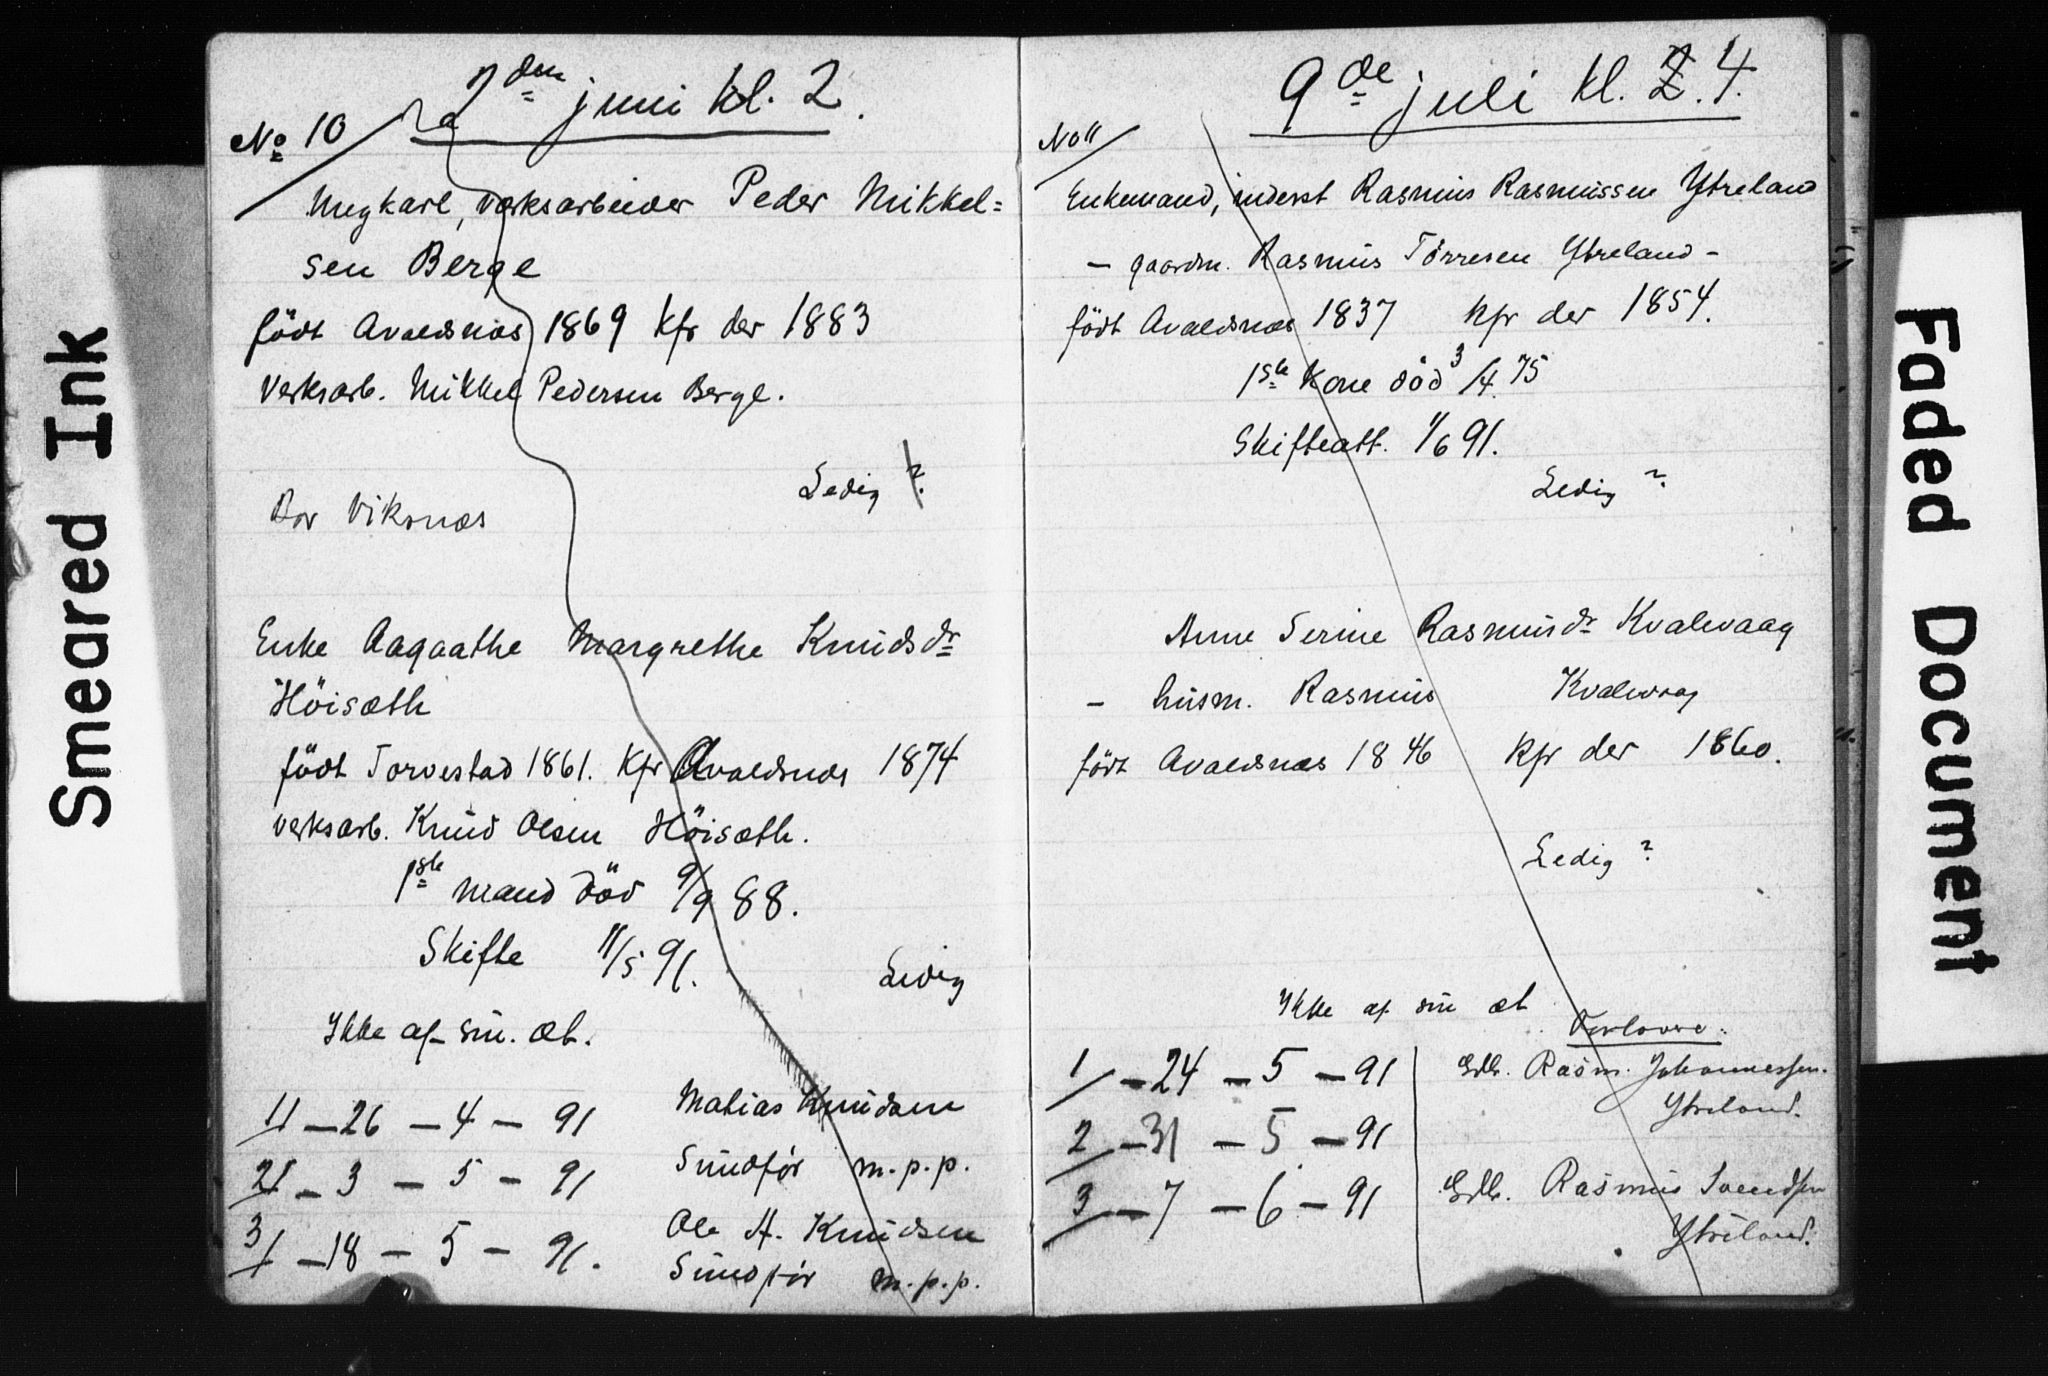 Smeared Ink
2den juni kl. 2.
No 10
Ungkarl, værksarbeider Peder Mikkel=
sen Berge
födt Avaldsnæs 1869 Kfr der 1883
Verksarb. Mikkel Pedersen Berge.
Ledig ?
Bor Viksnæs
Enke Aagaathe Margrethe Knudsdr
Höisæth
födt Torvestad 1861. Kfr Avaldsnæs 1874
verksarb. Knud Olsen Höisæth.
1ste mand död 9/9 88.
Skifte 11/5 91.
Ledig
Ikke af sm. æt.
1/ - 26 - 4 - 91 Matias Knudsen
2/ - 3 - 5 - 91 Sundför m.p.p.
3/ - 18 - 5 - 91. Ole A. Knudsen
Sundför m.p.p.
9de juli kl. 2. 4.
No 11
Enkemand, inderst Rasmus Rasmussen Ytreland
- gaardm. Rasmus Törresen Ytreland -
födt Avaldsnæs 1837 kfr der 1854.
1ste Kone död 3/4 75
Skifteatt. 1/6 91.
Ledig ?
Anne Serine Rasmusdr Kvalevaag
- husm. Rasmus Kvalevaag
födt Avaldsnæs 1846 kfr der 1860.
Ledig ?
Ikke af sm æt
Forlovere:
1/ - 24 - 5 - 91 Gdb. Rasm. Johannessen.
Ytreland.
2/ - 31 - 5 - 91
3/ - 7 - 6 - 91 Gdb. Rasmus Svendsen
Ytreland.
Faded Document